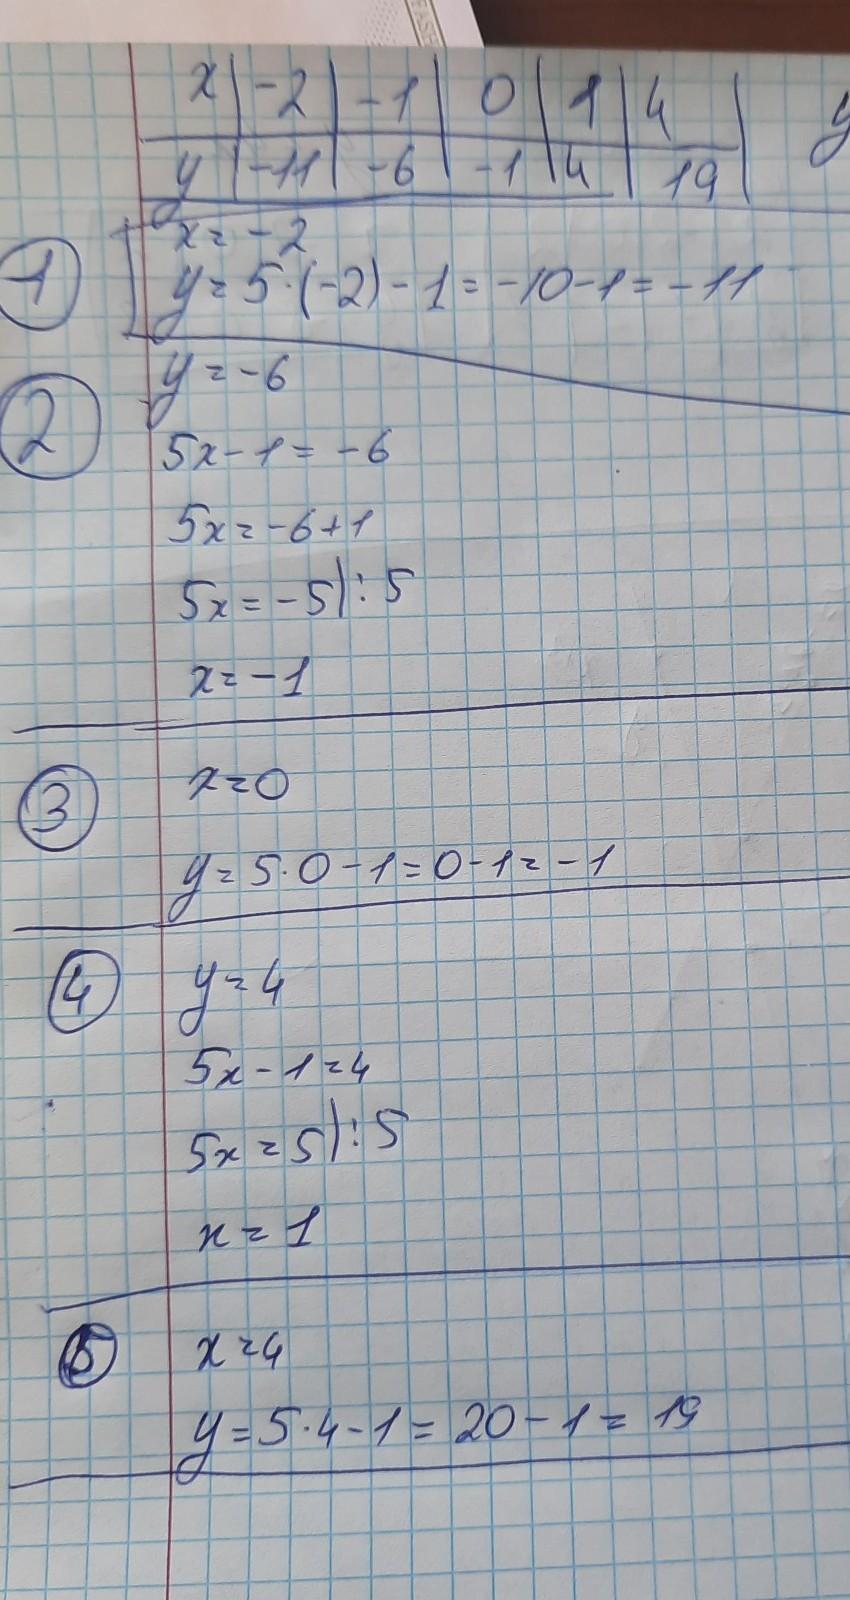 x | -2 | -1 | 0 | 1 | 4 y
y | -11 | -6 | -1 | 4 | 19 |
1 x = -2
y = 5·(-2) - 1 = -10 - 1 = -11
2 y = -6
5x - 1 = -6
5x = -6 + 1
5x = -5 | : 5
x = -1
3 x = 0
y = 5·0 - 1 = 0 - 1 = -1
4 y = 4
5x - 1 = 4
5x = 5 | : 5
x = 1
5 x = 4
y = 5·4 - 1 = 20 - 1 = 19